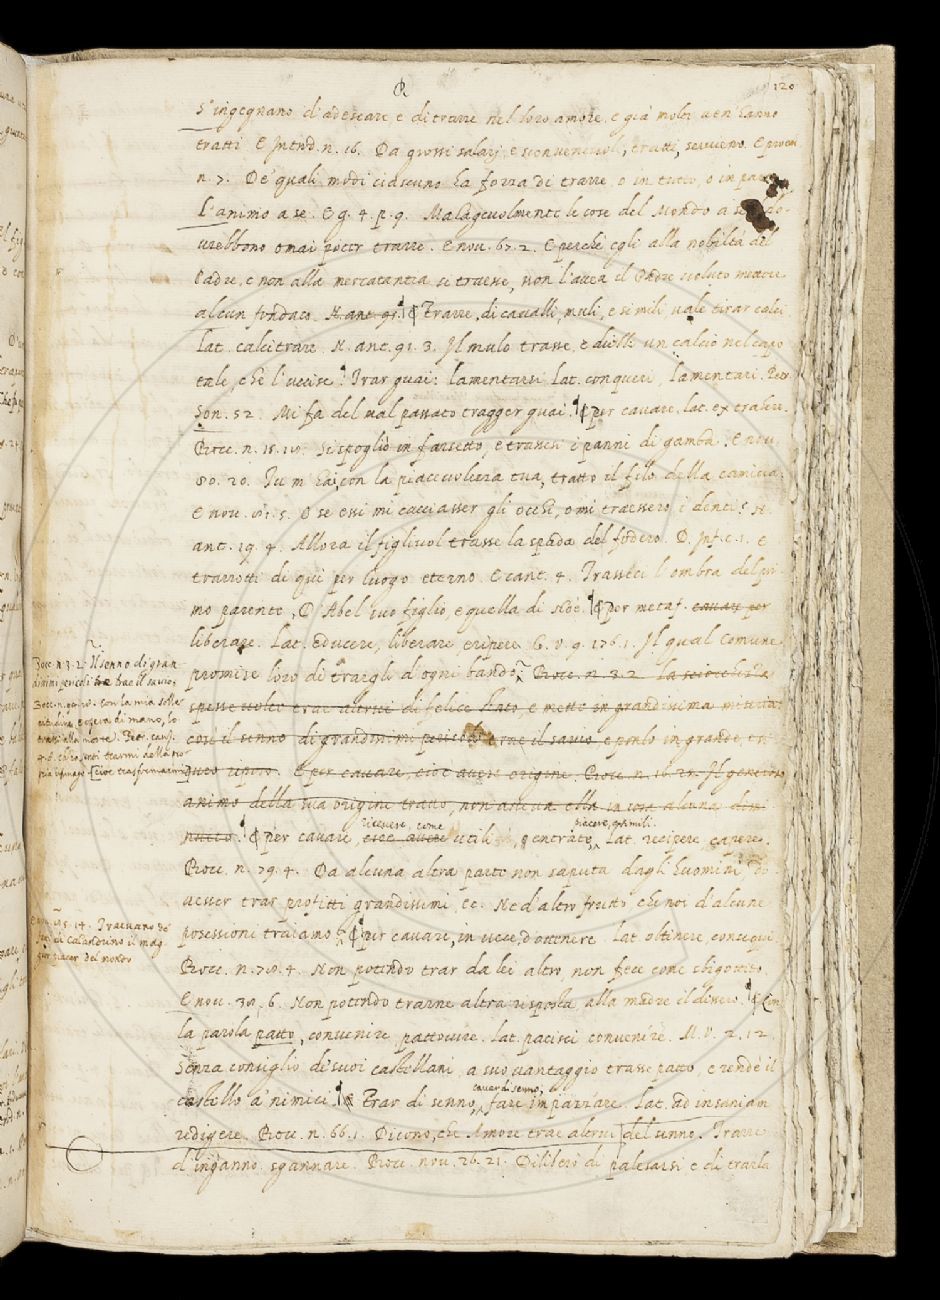 R
120
s'ingegnano d'adescare e di trarre nel loro amore, e già molti ven'hanno
tratti. E Introd. n. 16. Da grossi salarj, e sconvenevoli, tratti, servieno. E proem.
n. 7. De' quali modi ciascuno ha forza di trarre, o in tutto, o in parte
l'animo a se. E g. 4. p. 9. Malagevolmente le cose del Mondo a se
vrebbono omai poter trarre. E nov. 67. 2. E perchè egli alla nobiltà del
Padre, e non alla mercatantia si traesse, non l'avea il Padre voluto mettere
alcun fondaco. N. ant. 91. Trarre, di cavalli, muli, e simili vale tirar calci
Lat. calcitrare. N. ant. 91. 3. Il mulo trasse, e diedle un calcio nel capo
tale, che l'uccise. Trar guai: lamentarsi. Lat. conqueri, lamentari. Petr.
Son. 52. Mi fa del mal passato tragger guai. per cavare, lat. extrahere.
Bocc. n. 15. Si spogliò in farsetto, e trassesi i panni di gamba. E nov.
80. 20. Tu m'hai, con la piacevolezza tua, tratto il filo della camicia.
E nov. 5. O se essi mi cacciasser gli occhi, o mi traessero i denti. N.
ant. 19. 4. Allora il figliuol trasse la spada del fodero. D. Inf. c. 1. E
trarrotti di qui per luogo eterno. E cant. 4. Trasseci l'ombra del pri-
mo parente, D'Abel suo figlio, e quella di Noè. per metaf. cavare per
liberare. Lat. educere, liberare, eripere. G. V. 9. 136. 1. Il qual Comune
promise loro di trargli d'ogni bando. Bocc. n. 3. 2. La sciocchezza
spesse volte trae altrui di felice stato, e mette in grandissima miseria
così il senno di grandissimi pericoli trae il savio, e ponlo in grande,
riposo. E per cavare, cioè avere origine. Bocc. n. 16. Il generoso
animo della sua origine tratto, non aveva ella in cosa alcuna
ricevere, come
piacere, e simili.
per cavare, cioè avere utile, entrate, Lat. recipere, capere.
Bocc. n. 79. 4. Da alcuna altra parte non saputa dagli huomini,
vesser trar profitti grandissimi, ec. Ne d'altro frutto, che noi d'alcune
possessioni traiamo. per cavare, in vece d'ottenere. Lat. obtinere, consequi
Bocc. n. 4. Non potendo trar da lei altro non fece come sbigottito.
E nov. 6. Non potendo trarne altra risposta, alla madre il dissero. Con
la parola patto, convenire, pattovire. Lat. pacisci convenire. M. V. 2. 12.
Senza consiglio de' suoi castellani, a suo vantaggio trasse patto, e rendè il
castello a' nimici. Trar di senno,
cavar di senno,
fare impazzare. Lat. ad insaniam
redigere. Bocc. n. 66. 1. Dicono, che Amore trae altrui del senno. Trarre
d'inganno, sgannare. Bocc. nov. 26. 21. Diliberò di palesarsi e di trarla
Bocc. n. 3. 2. Il senno di gran-
dissimi pericoli trae il savio.
Bocc. n. con la mia solle-
citudine, e opera di mano, lo
tratti alla morte. Petr. canz.
trarmi della pro-
pria cioè trasformarmi
E nov. 14. Traevano de'
fatti di Calandrino il mag-
gior piacer del mondo